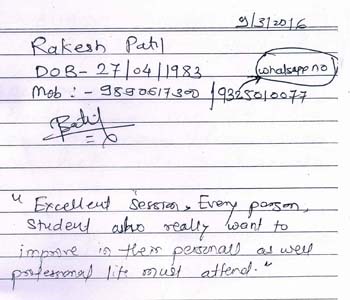 9/3/2016
Rakesh Patil
DOB- 27/04/1983
whatsapp no
Mob :- 9890617300 / 9325010077
" Excellent Session. Every person,
Student who really want to
improve in their personall as well
professional life must attend."